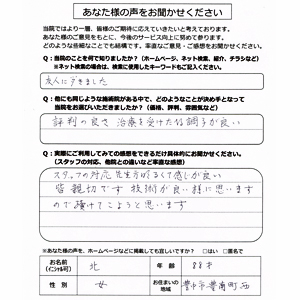 あなた様の声をお聞かせください
当院ではより一層、皆様のご期待に応えていきたいと考えております。
あなた様のご意見をもとに、今後のサービス向上に努めて参ります。
どのような些細なことでも結構です。率直なご意見・ご感想をお聞かせください。
Q：当院のことを何で知りましたか？（ホームページ、ネット検索、紹介、チラシなど）
※ネット検索の場合は、検索に使用したキーワードもご記入ください。
友人にききました
Q：他にも同じような施術院がある中で、どのようなことが決め手となって
当院をお選びいただきましたか？（価格、評判、雰囲気など）
評判の良さ 治療を受けた後調子が良い
Q：実際にご利用してみての感想をできるだけ具体的にお聞かせください。
（スタッフの対応、他院との違いなど率直な感想）
スタッフの対応 先生方明るくて感じが良い
皆親切です 技術が良い様に思います
ので続けてこようと思います
※あなた様の声を、ホームページなどに掲載しても宜しいですか？ □はい □匿名で
お名前
(イニシャル可)
北
年齢
88才
性別
女
お住まいの
地域
豊中市豊南町西